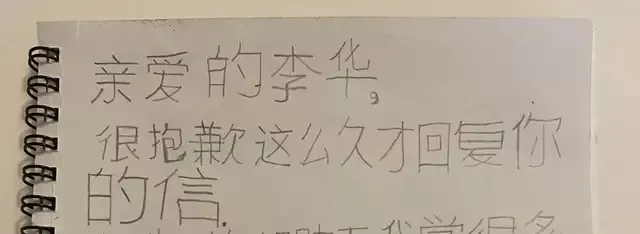 亲爱的李华,
很抱歉这么久才回复你
的信.